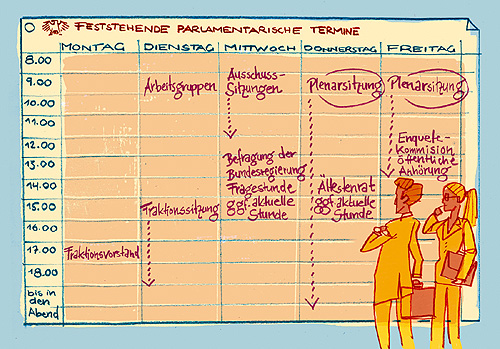 FESTSTEHENDE PARLAMENTARISCHE TERMINE
MONTAG DIENSTAG MITTWOCH DONNERSTAG FREITAG
8.00
9.00
10.00
11.00
12.00
13.00
14.00
15.00
16.00
17.00
18.00
bis in
den
Abend
Fraktionsvorstand
Arbeitsgruppen
Fraktionssitzung
Ausschuss-
Sitzungen
Befragung der
Bundesregierung
Fragestunde
ggf. aktuelle
Stunde
Plenarsitzung
Ältestenrat
ggf. aktuelle
Stunde
Plenarsitzung
Enquete-
Kommision
öffentliche
Anhörung